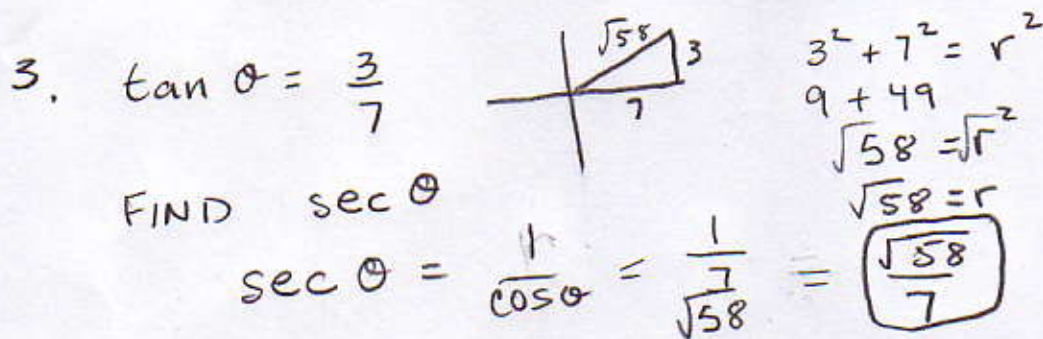 3. tan θ = 3/7
√58
3
7
3² + 7² = r²
9 + 49
√58 = √r²
√58 = r
FIND sec θ
sec θ = 1/cosθ = 1/(7/√58) = √58/7